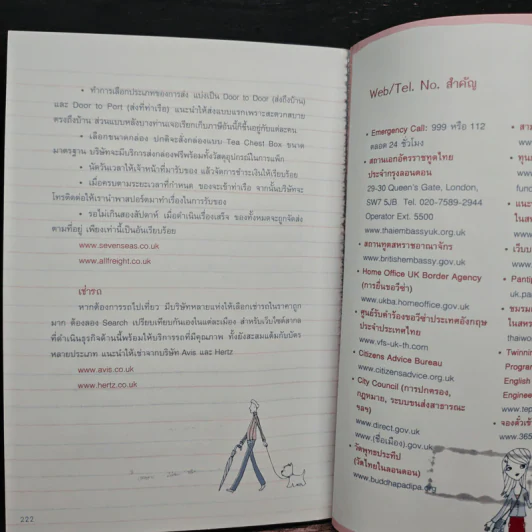 • ทำการเลือกประเภทของการส่ง แบ่งเป็น Door to Door (ส่งถึงบ้าน)
และ Door to Port (ส่งที่ท่าเรือ) แนะนำให้ส่งแบบแรกเพราะสะดวกสบาย
ตรงถึงบ้าน ส่วนแบบหลังบางท่านเจอเรียกเก็บภาษีอันนี้ก็ขึ้นอยู่กับแต่ละคน
• เลือกขนาดกล่อง ปกติจะส่งกล่องแบบ Tea Chest Box ขนาด
มาตรฐาน บริษัทจะมีบริการส่งกล่องฟรีพร้อมทั้งวัสดุอุปกรณ์ในการแพ็ก
• นัดวันเวลาให้เจ้าหน้าที่มารับของ แล้วจัดการชำระเงินให้เรียบร้อย
• เมื่อครบตามระยะเวลาที่กำหนด ของจะเข้าท่าเรือ จากนั้นบริษัทจะ
โทรติดต่อให้เรานำพาสปอร์ตมาทำเรื่องในการรับของ
• รอไม่เกินสองสัปดาห์ เมื่อดำเนินเรื่องเสร็จ ของทั้งหมดจะถูกจัดส่ง
ตามที่อยู่ เพียงเท่านี้เป็นอันเรียบร้อย
www.sevenseas.co.uk
www.allfreight.co.uk
เช่ารถ
หากต้องการรถไปเที่ยว มีบริษัทหลายแห่งให้เลือกเช่ารถในราคาถูก
มาก ต้องลอง Search เปรียบเทียบกันเองในแต่ละเมือง สำหรับเว็บไซต์สากล
ที่ดำเนินธุรกิจด้านนี้พร้อมให้บริการรถที่มีคุณภาพ ทั้งยังสะสมแต้มกับบัตร
หลายประเภท แนะนำให้เช่าจากบริษัท Avis และ Hertz
www.avis.co.uk
www.hertz.co.uk
222
Web/Tel. No. สำคัญ
• Emergency Call: 999 หรือ 112
ตลอด 24 ชั่วโมง
• สถานเอกอัครราชทูตไทย
ประจำกรุงลอนดอน
29-30 Queen's Gate, London,
SW7 5JB Tel. 020-7589-2944
Operator Ext. 5500
www.thaiembassyuk.org.uk
• สถานทูตสหราชอาณาจักร
www.britishembassy.gov.uk
• Home Office UK Border Agency
(การยื่นขอวีซ่า)
www.ukba.homeoffice.gov.uk
• ศูนย์รับคำร้องขอวีซ่าประเทศอังกฤษ
ประจำประเทศไทย
www.vfs-uk-th.com
• Citizens Advice Bureau
www.citizensadvice.org.uk
• City Council (การปกครอง,
กฎหมาย, ระบบขนส่งสาธารณะ
ฯลฯ)
www.direct.gov.uk
www.(ชื่อเมือง).gov.uk
• วัดพุทธประทีป
(วัดไทยในลอนดอน)
www.buddhapadipa.org
www
• ทุน
func
• แนะ
ในส
www.
• เว็บบ
www.
• Pantip
uk.pa
• ชมรม
ในสห
thaiwo
• Twinnin
Progra
English
Enginee
www.tep
• จองตั๋วเ
www.365